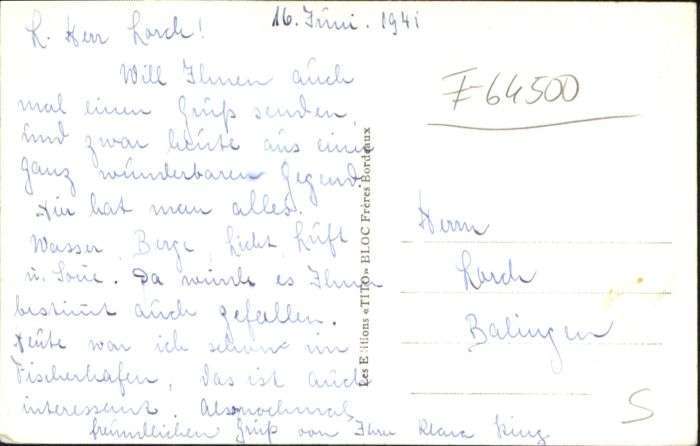 16. Juni. 1941
L. Herr Lorch!
Will Ihnen auch
mal einen Gruß senden,
und zwar heute aus einer
ganz wunderbaren Gegend.
Hier hat man alles.
Wasser, Berge, Licht, Luft
u. Sonne. Da würde es Ihnen
bestimt auch gefallen.
Heute war ich schon im
Fischerhafen, das ist auch
interessant. Also nochmal
freundlichen Gruß von Ihrer Klara
Les Editions «TITO» BLOC Frères Bordeaux
F 64500
Herrn
Lorch
Balingen
S